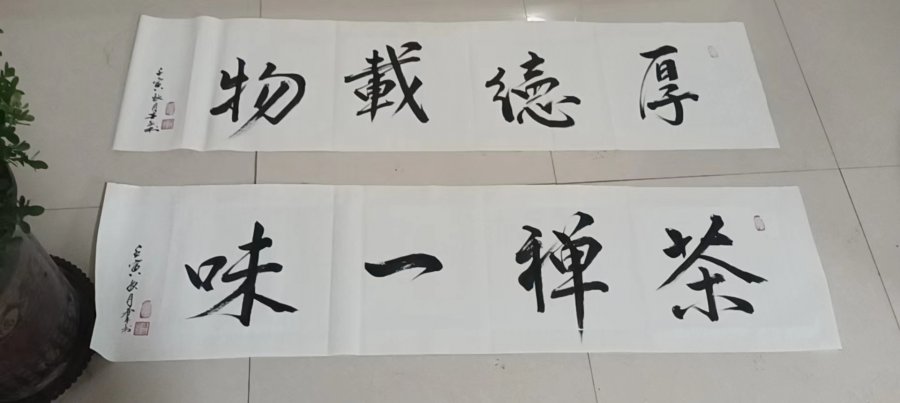 厚德載物
壬寅秋月
茶禅一味
壬寅秋月